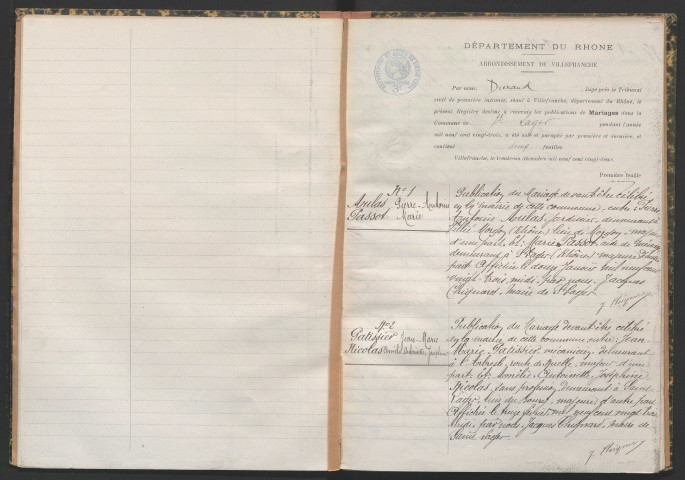 DÉPARTEMENT DU RHONE
ARRONDISSEMENT DE VILLEFRANCHE
Par nous, Durand, Juge près le Tribunal
civil de première instance, séant à Villefranche, département du Rhône, le
présent Registre destiné à recevoir les publications de Mariages dans la
Commune de St Lager pendant l'année
mil neuf cent vingt-trois, a été coté et paraphé par première et dernière, et
contient cinq feuilles
Villefranche, le décembre mil neuf cent vingt-deux.
Première feuille
No 1
Aulas Pierre-Antoine
Passot Marie
Publication du Mariage devant être célébré
en la mairie de cette commune, entre Pierre
Antoine Aulas, jardinier, demeurant à
Villié-Morgon (Rhône) lieu de Morgon, majeur
d'une part et Marie Passot, aide de ménage
demeurant à St Lager (Rhône) majeure d'autre
part Affichée le douze Janvier mil neuf cent
vingt-trois, midi, par nous, Jacques
Chignard, maire de St Lager
No 2
Patissier Jean-Marie
Nicolas Amélie Antoinette Joséphine
Publication du Mariage devant être célébré
en la mairie de cette commune entre Jean-
Marie Patissier, mécanicien, demeurant
à l'Arbresle, route de majeur d'une
part et Amélie Antoinette Joséphine
Nicolas, sans profession, demeurant à Saint
Lager, lieu du bourg, majeure, d'autre part
Affichée le mil neuf cent vingt trois
midi, par nous, Jacques Chignard, maire de
Saint Lager